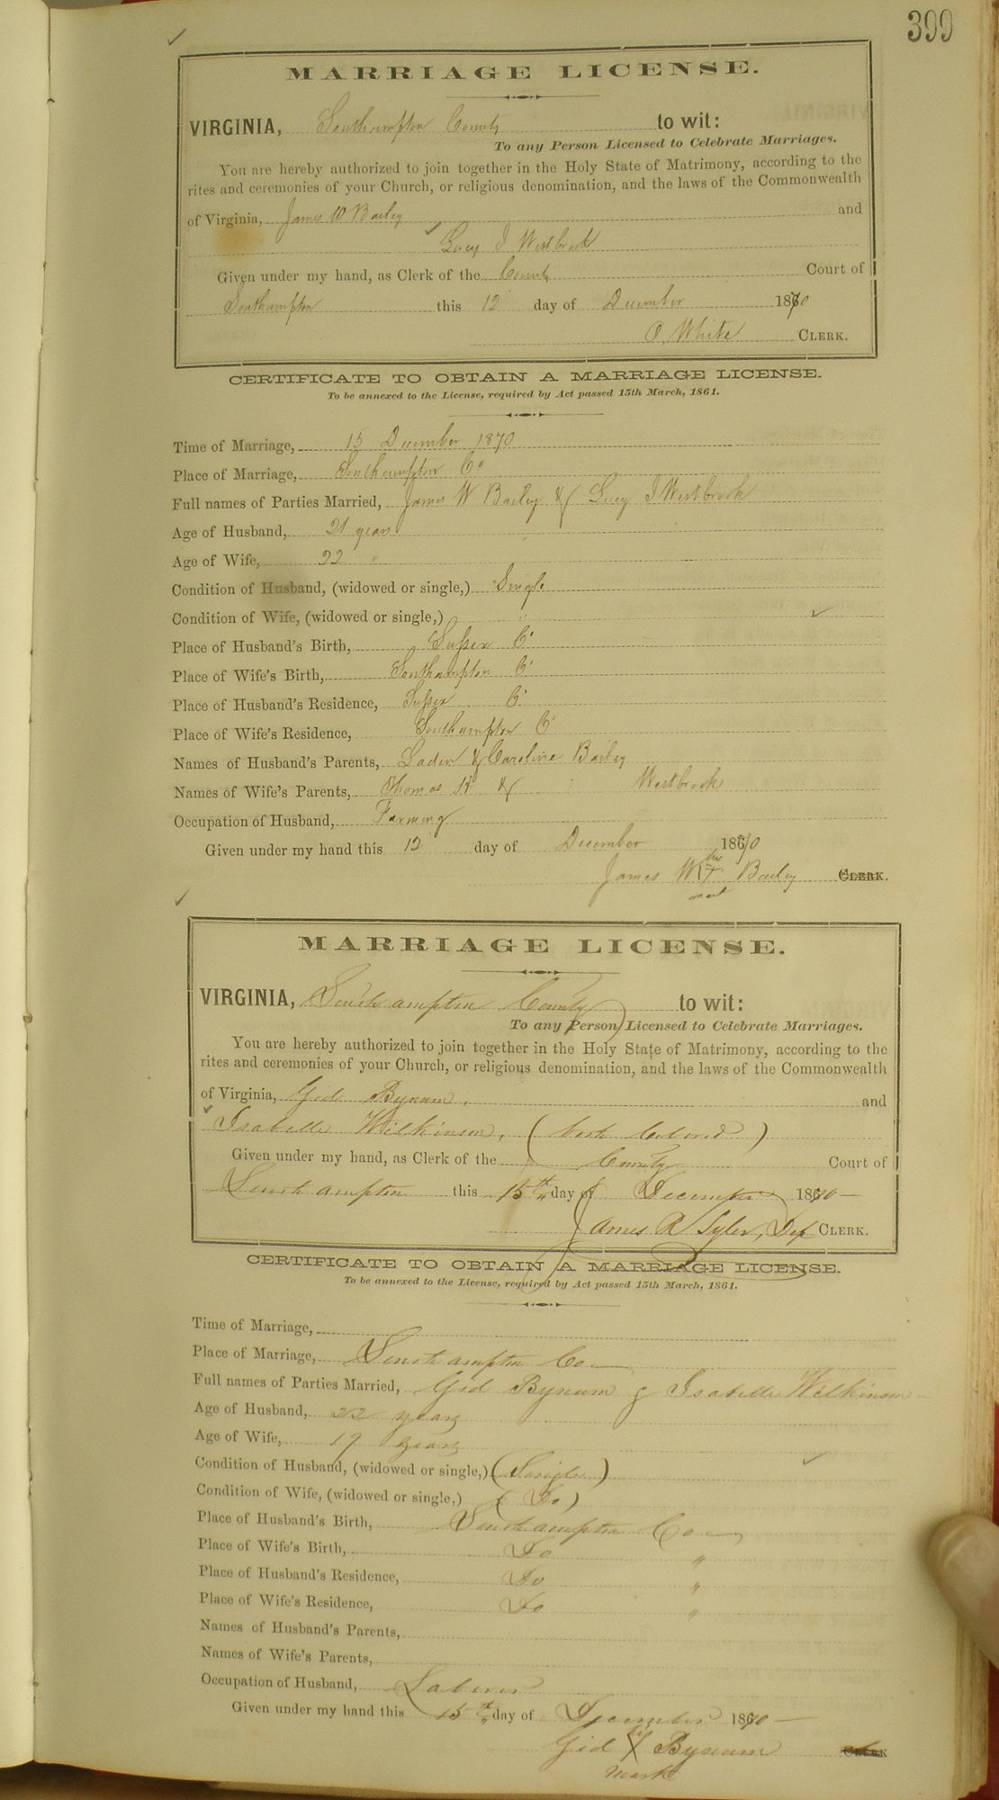 399
MARRIAGE LICENSE.
VIRGINIA, Southampton County to wit:
To any Person Licensed to Celebrate Marriages.
You are hereby authorized to join together in the Holy State of Matrimony, according to the
rites and ceremonies of your Church, or religious denomination, and the laws of the Commonwealth
of Virginia, James W Bailey and
Lucy J Westbrook
Given under my hand, as Clerk of the County Court of
Southampton this 12 day of December 1870
O. White CLERK.
CERTIFICATE TO OBTAIN A MARRIAGE LICENSE.
To be annexed to the License, required by Act passed 15th March, 1861.
Time of Marriage, 15 December 1870
Place of Marriage, Southampton Co
Full names of Parties Married, James W Bailey & Lucy J Westbrook
Age of Husband, 21 years
Age of Wife, 22 "
Condition of Husband, (widowed or single,) Single
Condition of Wife, (widowed or single,) "
Place of Husband's Birth, Sussex Co
Place of Wife's Birth, Southampton Co
Place of Husband's Residence, Sussex Co
Place of Wife's Residence, Southampton Co
Names of Husband's Parents, & Caroline Bailey
Names of Wife's Parents, Thomas & Westbrook
Occupation of Husband, Farming
Given under my hand this 12 day of December 1870
his
James W + Bailey CLERK.
mark
MARRIAGE LICENSE.
VIRGINIA, Southampton County to wit:
To any Person Licensed to Celebrate Marriages.
You are hereby authorized to join together in the Holy State of Matrimony, according to the
rites and ceremonies of your Church, or religious denomination, and the laws of the Commonwealth
of Virginia, Gid Bynum, and
Isabelle Wilkinson, (both Colored)
Given under my hand, as Clerk of the County Court of
Southampton this 15th day of December 1870
James R Tyler, Dep CLERK.
CERTIFICATE TO OBTAIN A MARRIAGE LICENSE.
To be annexed to the License, required by Act passed 15th March, 1861.
Time of Marriage,
Place of Marriage, Southampton Co
Full names of Parties Married, Gid Bynum & Isabelle Wilkinson
Age of Husband, 22 years
Age of Wife, 19 years
Condition of Husband, (widowed or single,) (Single)
Condition of Wife, (widowed or single,) (Do)
Place of Husband's Birth, Southampton Co
Place of Wife's Birth, Do "
Place of Husband's Residence, Do "
Place of Wife's Residence, Do "
Names of Husband's Parents,
Names of Wife's Parents,
Occupation of Husband, Laborer
Given under my hand this 15th day of December 1870
his
Gid X Bynum CLERK
mark